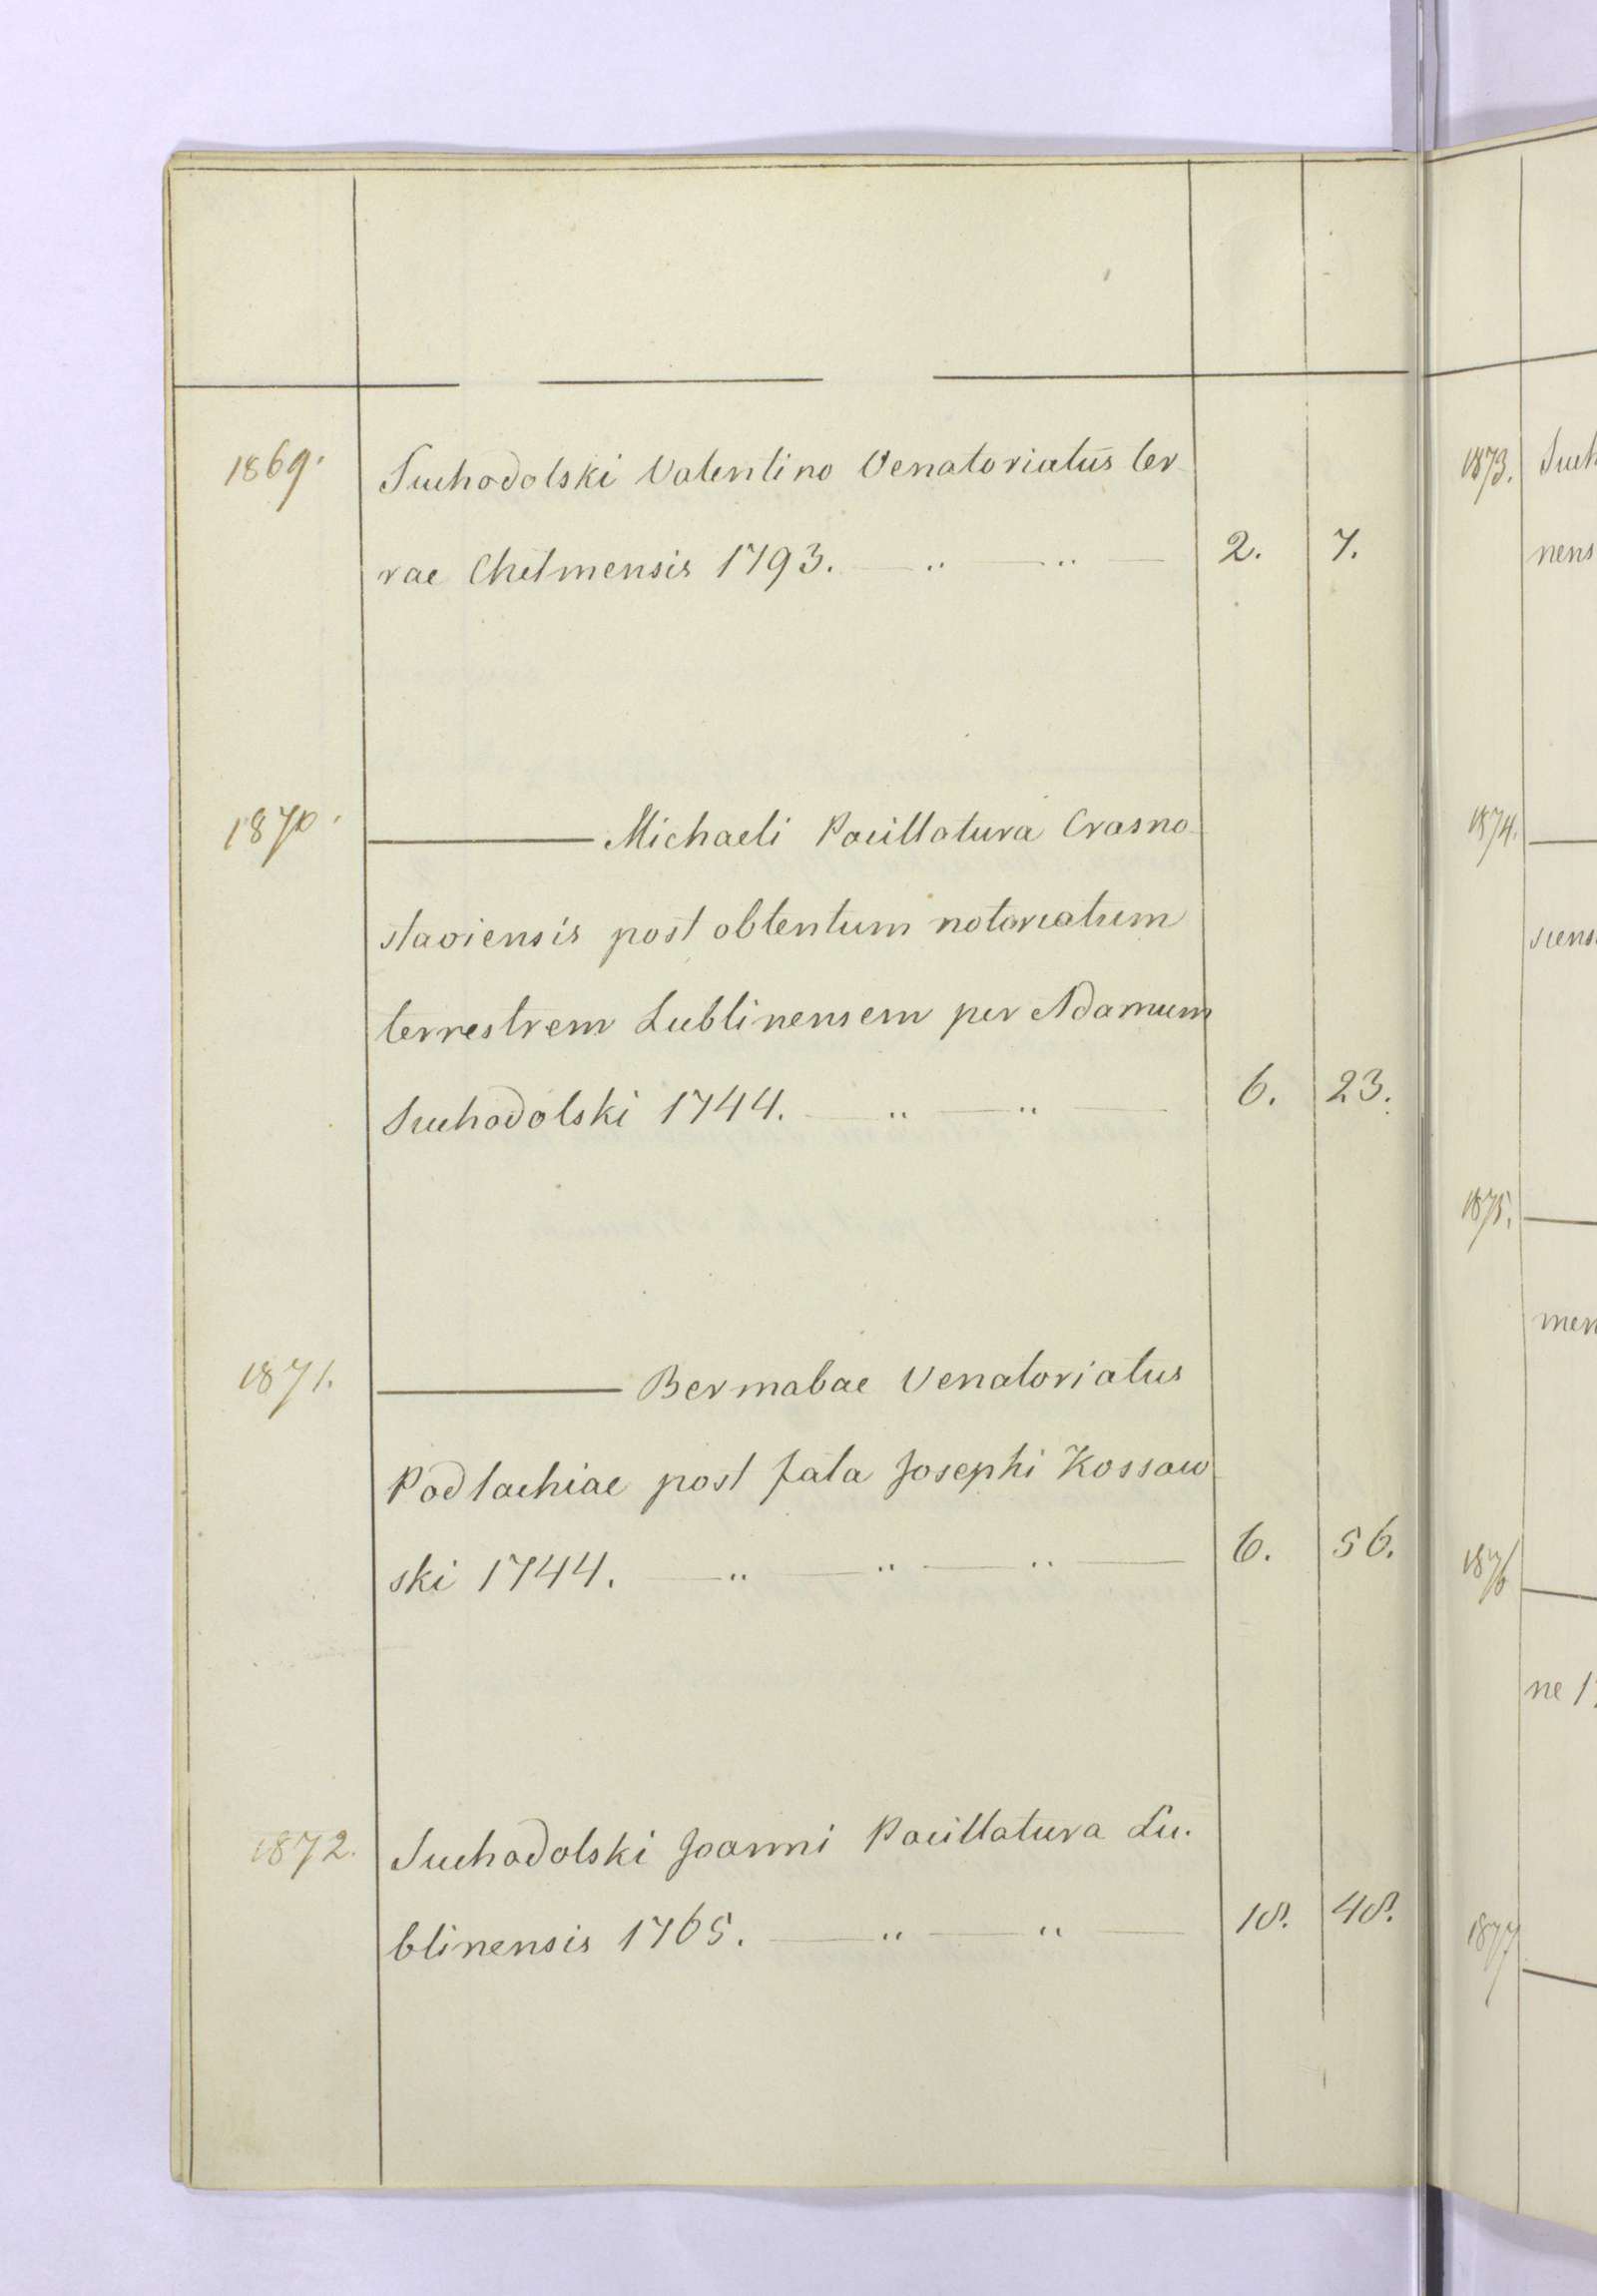 1869. Suchodolski Valentino Venatoriatus ter-
rae Chelmensis 1793. — " — " — 2. 7.
1870. ——— Michaeli Pocillatura Crasno-
staviensis post obtentum notariatum
terrestrem Lublinensem per Adamum
Suchodolski 1744. — " — " — 6. 23.
1871. ——— Bernabae Venatoriatus
Podlachiae post fata Josephi Kossow-
ski 1744. — " — " — " — 6. 56.
1872. Suchodolski Joanni Pocillatura Lu-
blinensis 1765. — " — " — 18. 48.
1873. Such
nens
1874. ———
siens
1875. ———
men
1876 ———
ne 1
1877 ———